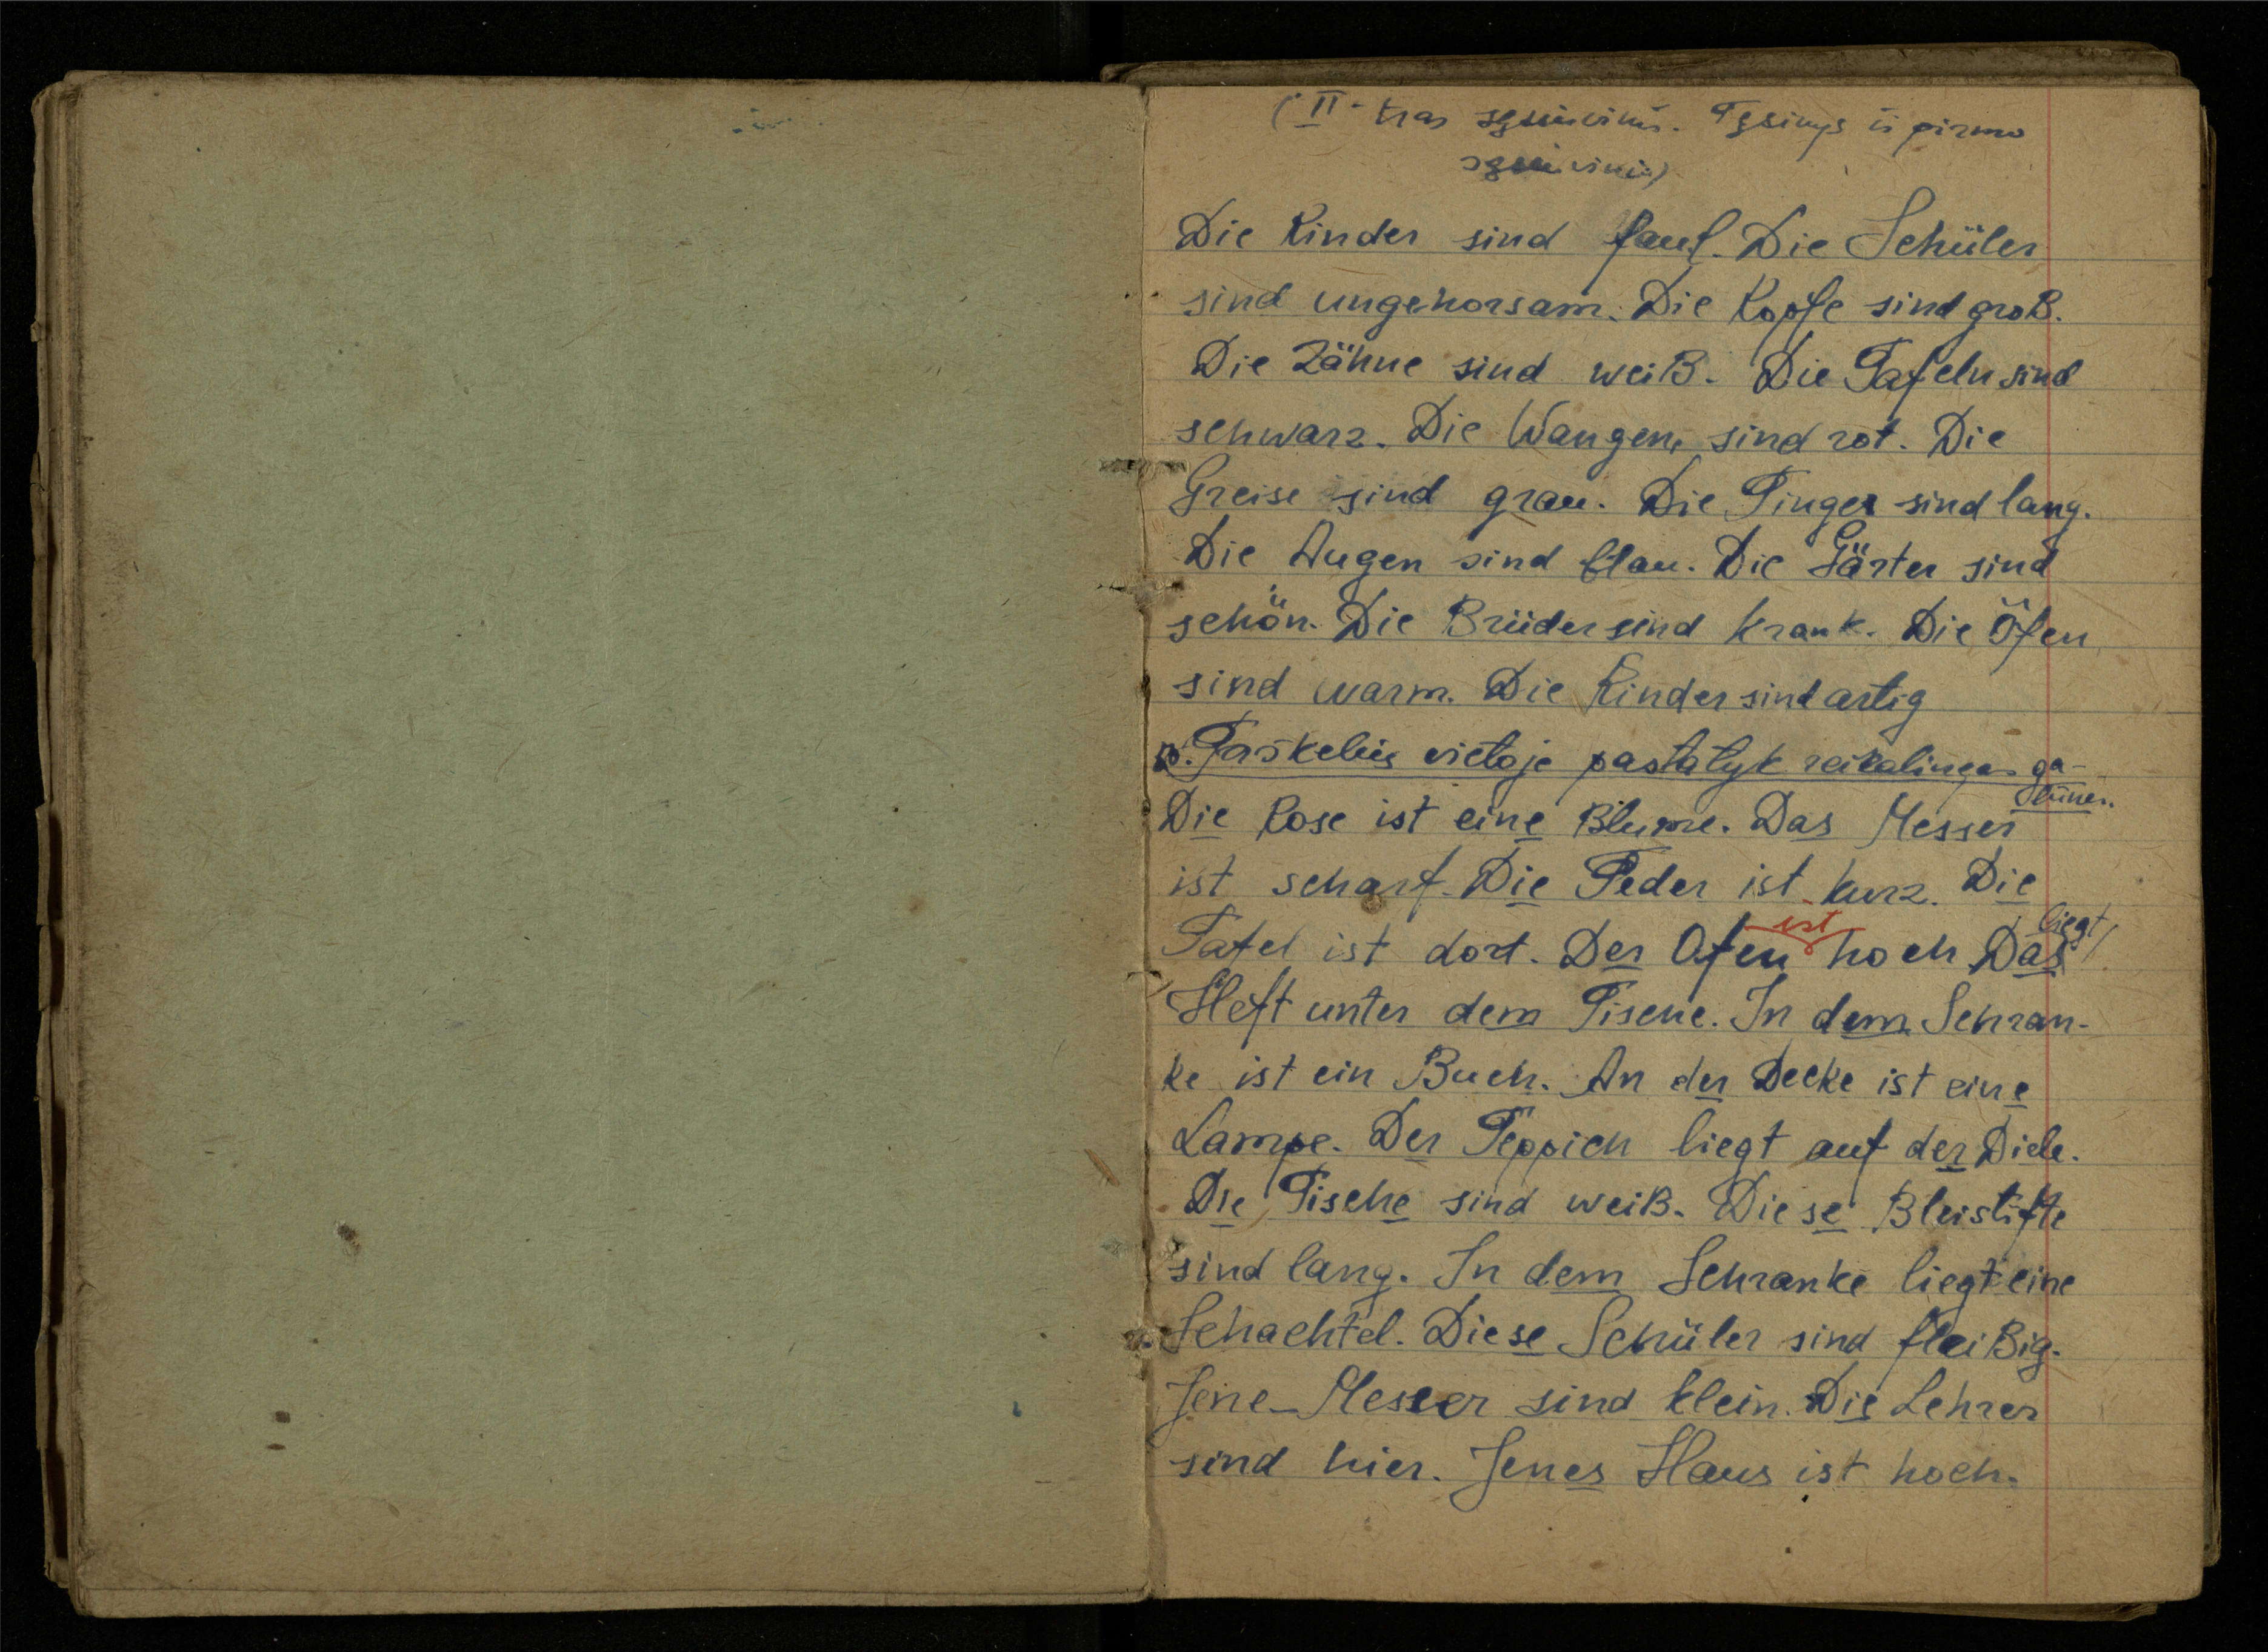 (II-tras sąsiuvinis. Tęsinys iš pirmo
sąsiuvinio)
Die Kinder sind faul. Die Schüler
sind ungehorsam. Die Kopfe sind groß.
Die Zähne sind weiß. Die Tafeln sind
schwarz. Die Wangen sind rot. Die
Greise sind grau. Die Finger sind lang.
Die Augen sind blau. Die Gärter sind
schön. Die Brüder sind krank. Die Öfen
sind warm. Die Kinder sind artig
vietoje pastatyk reikalingas ga-
lūnes.
Die Rose ist eine Blume. Das Messer
ist scharf. Die Feder ist kurz. Die
Tafel ist dort. Der Ofen ist hoch Das liegt
Heft unter dem Tische. In dem Schran-
ke ist ein Buch. An der Decke ist eine
Lampe. Der Teppich liegt auf der Diele.
Die Tische sind weiß. Diese Bleistifte
sind lang. In dem Schranke liegt eine
Schachtel. Diese Schüler sind fleißig.
Jene Messer sind klein. Die Lehrer
sind hier. Jenes Haus ist hoch.